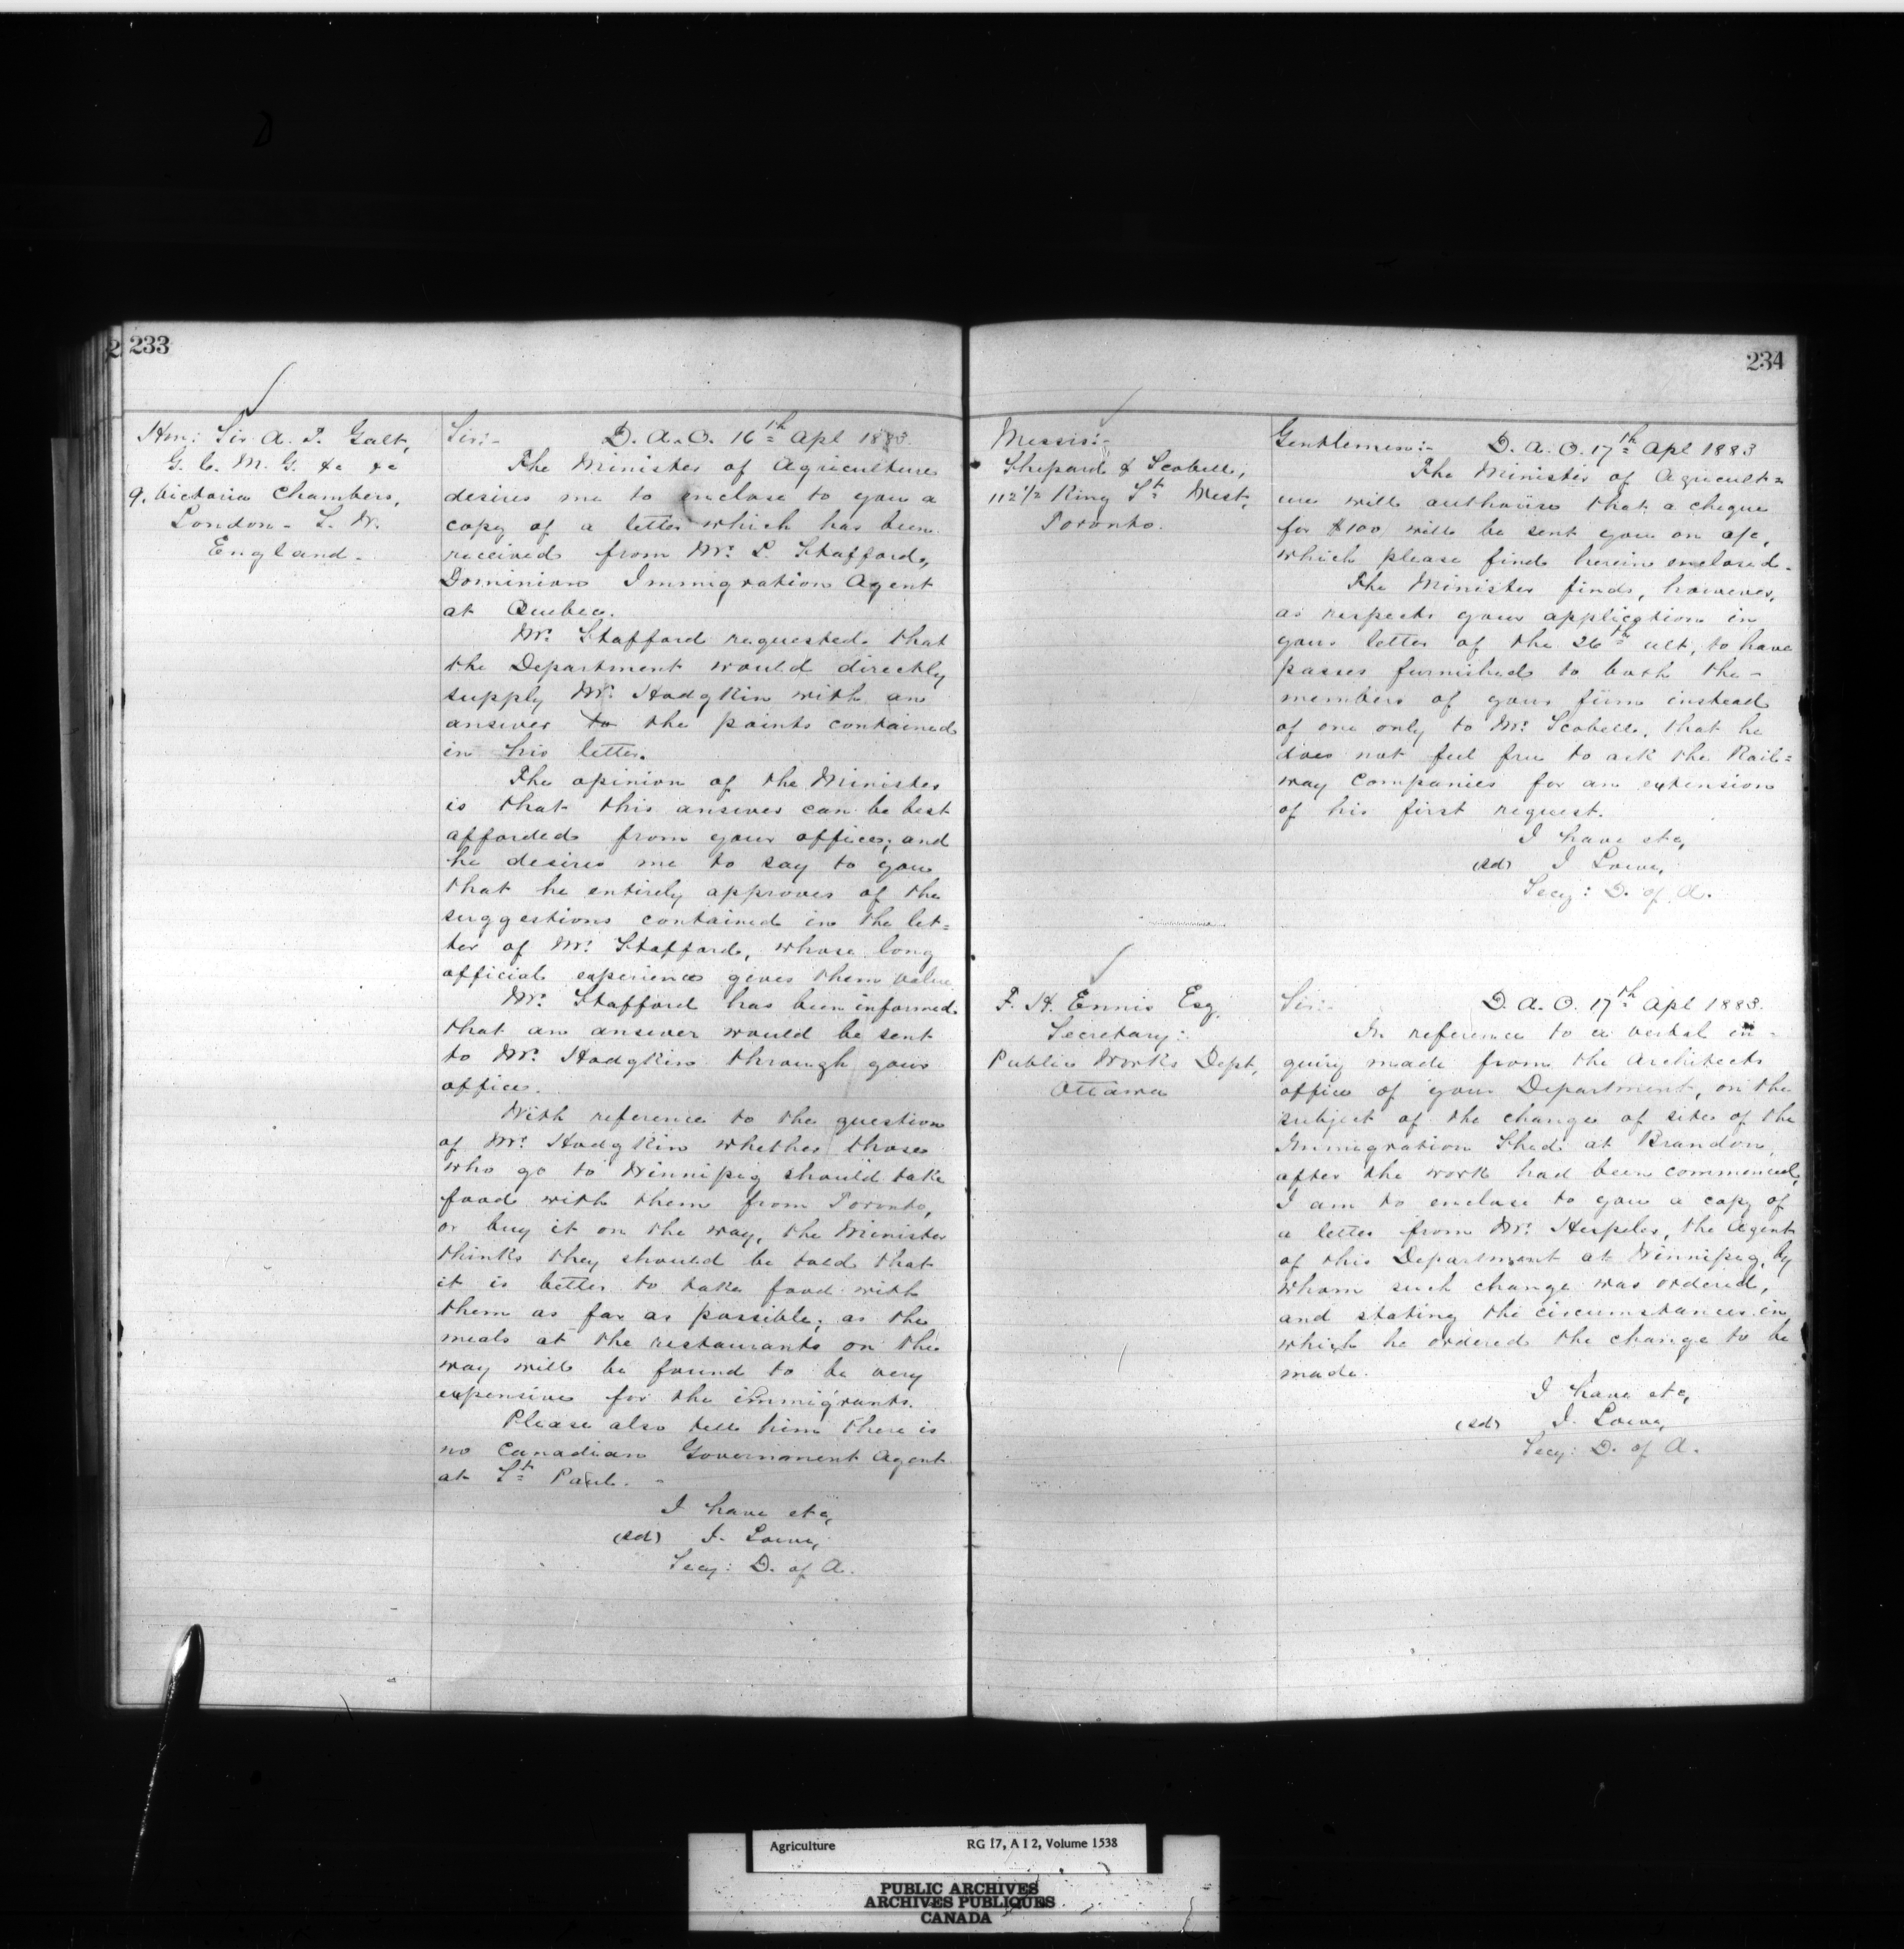 233
Hon: Sir A. T. Galt,
G. C. M. G. &c &c
9, Victoria Chambers,
London - S. W.
England -
Sir:- D. A. O. 16th Apl 1883.
The Minister of Agriculture
desires me to enclose to you a
copy of a letter which has been
received from Mr. L. Stafford,
Dominion Immigration Agent
at Quebec.
Mr. Stafford requested that
the Department would directly
supply Mr. Hodgkin with an
answer to the points contained
in his letter.
The opinion of the Minister
is that this answer can be best
afforded from your office; and
he desires me to say to you
that he entirely approves of the
suggestions contained in the let=
ter of Mr. Stafford, whose long
official experience gives them value
Mr. Stafford has been informed
that an answer would be sent
to Mr. Hodgkin through your
office.
With reference to the question
of Mr. Hodgkin whether those
who go to Winnipeg should take
food with them from Toronto,
or buy it on the way, the Minister
thinks they should be told that
it is better to take food with
them as far as possible; as the
meals at the restaurants on the
way will be found to be very
expensive for the immigrants.
Please also tell him there is
no Canadian Government Agent
at St Paul. -
I have etc,
(sd) J. Lowe,
Secy: D. of A.
234
Messrs:-
Shepard & Scobell,
112 1/2 King St West,
Toronto.
Gentlemen:- D. A. O. 17th Apl 1883
The Minister of Agricult=
ure will authorise that a cheque
for $100 will be sent you on a/c,
which please find herein enclosed.
The Minister finds, however,
as respects your application in
your letter of the 26th ult, to have
passes furnished to both the -
members of your firm instead
of one only to Mr. Scobell, that he
does not feel free to ask the Rail=
way Companies for an extension
of his first request.
I have etc,
(sd) J Lowe,
Secy: D. of A.
F. H. Ennis Esq,
Secretary:
Public Works Dept,
Ottawa
Sir:- D. A. O. 17th Apl 1883.
In reference to a verbal in -
quiry made from the Architects
office of your Department, on the
subject of the change of site of the
Immigration Shed at Brandon,
after the work had been commenced,
I am to enclose to you a copy of
a letter from Mr. Hespeler, the Agent
of this Department at Winnipeg, by
whom such change was ordered,
and stating the circumstances in
which he ordered the change to be
made.
I have etc,
(sd) J. Lowe,
Secy: D. of A.
Agriculture RG 17, A I 2, Volume 1538
PUBLIC ARCHIVES
ARCHIVES PUBLIQUES
CANADA